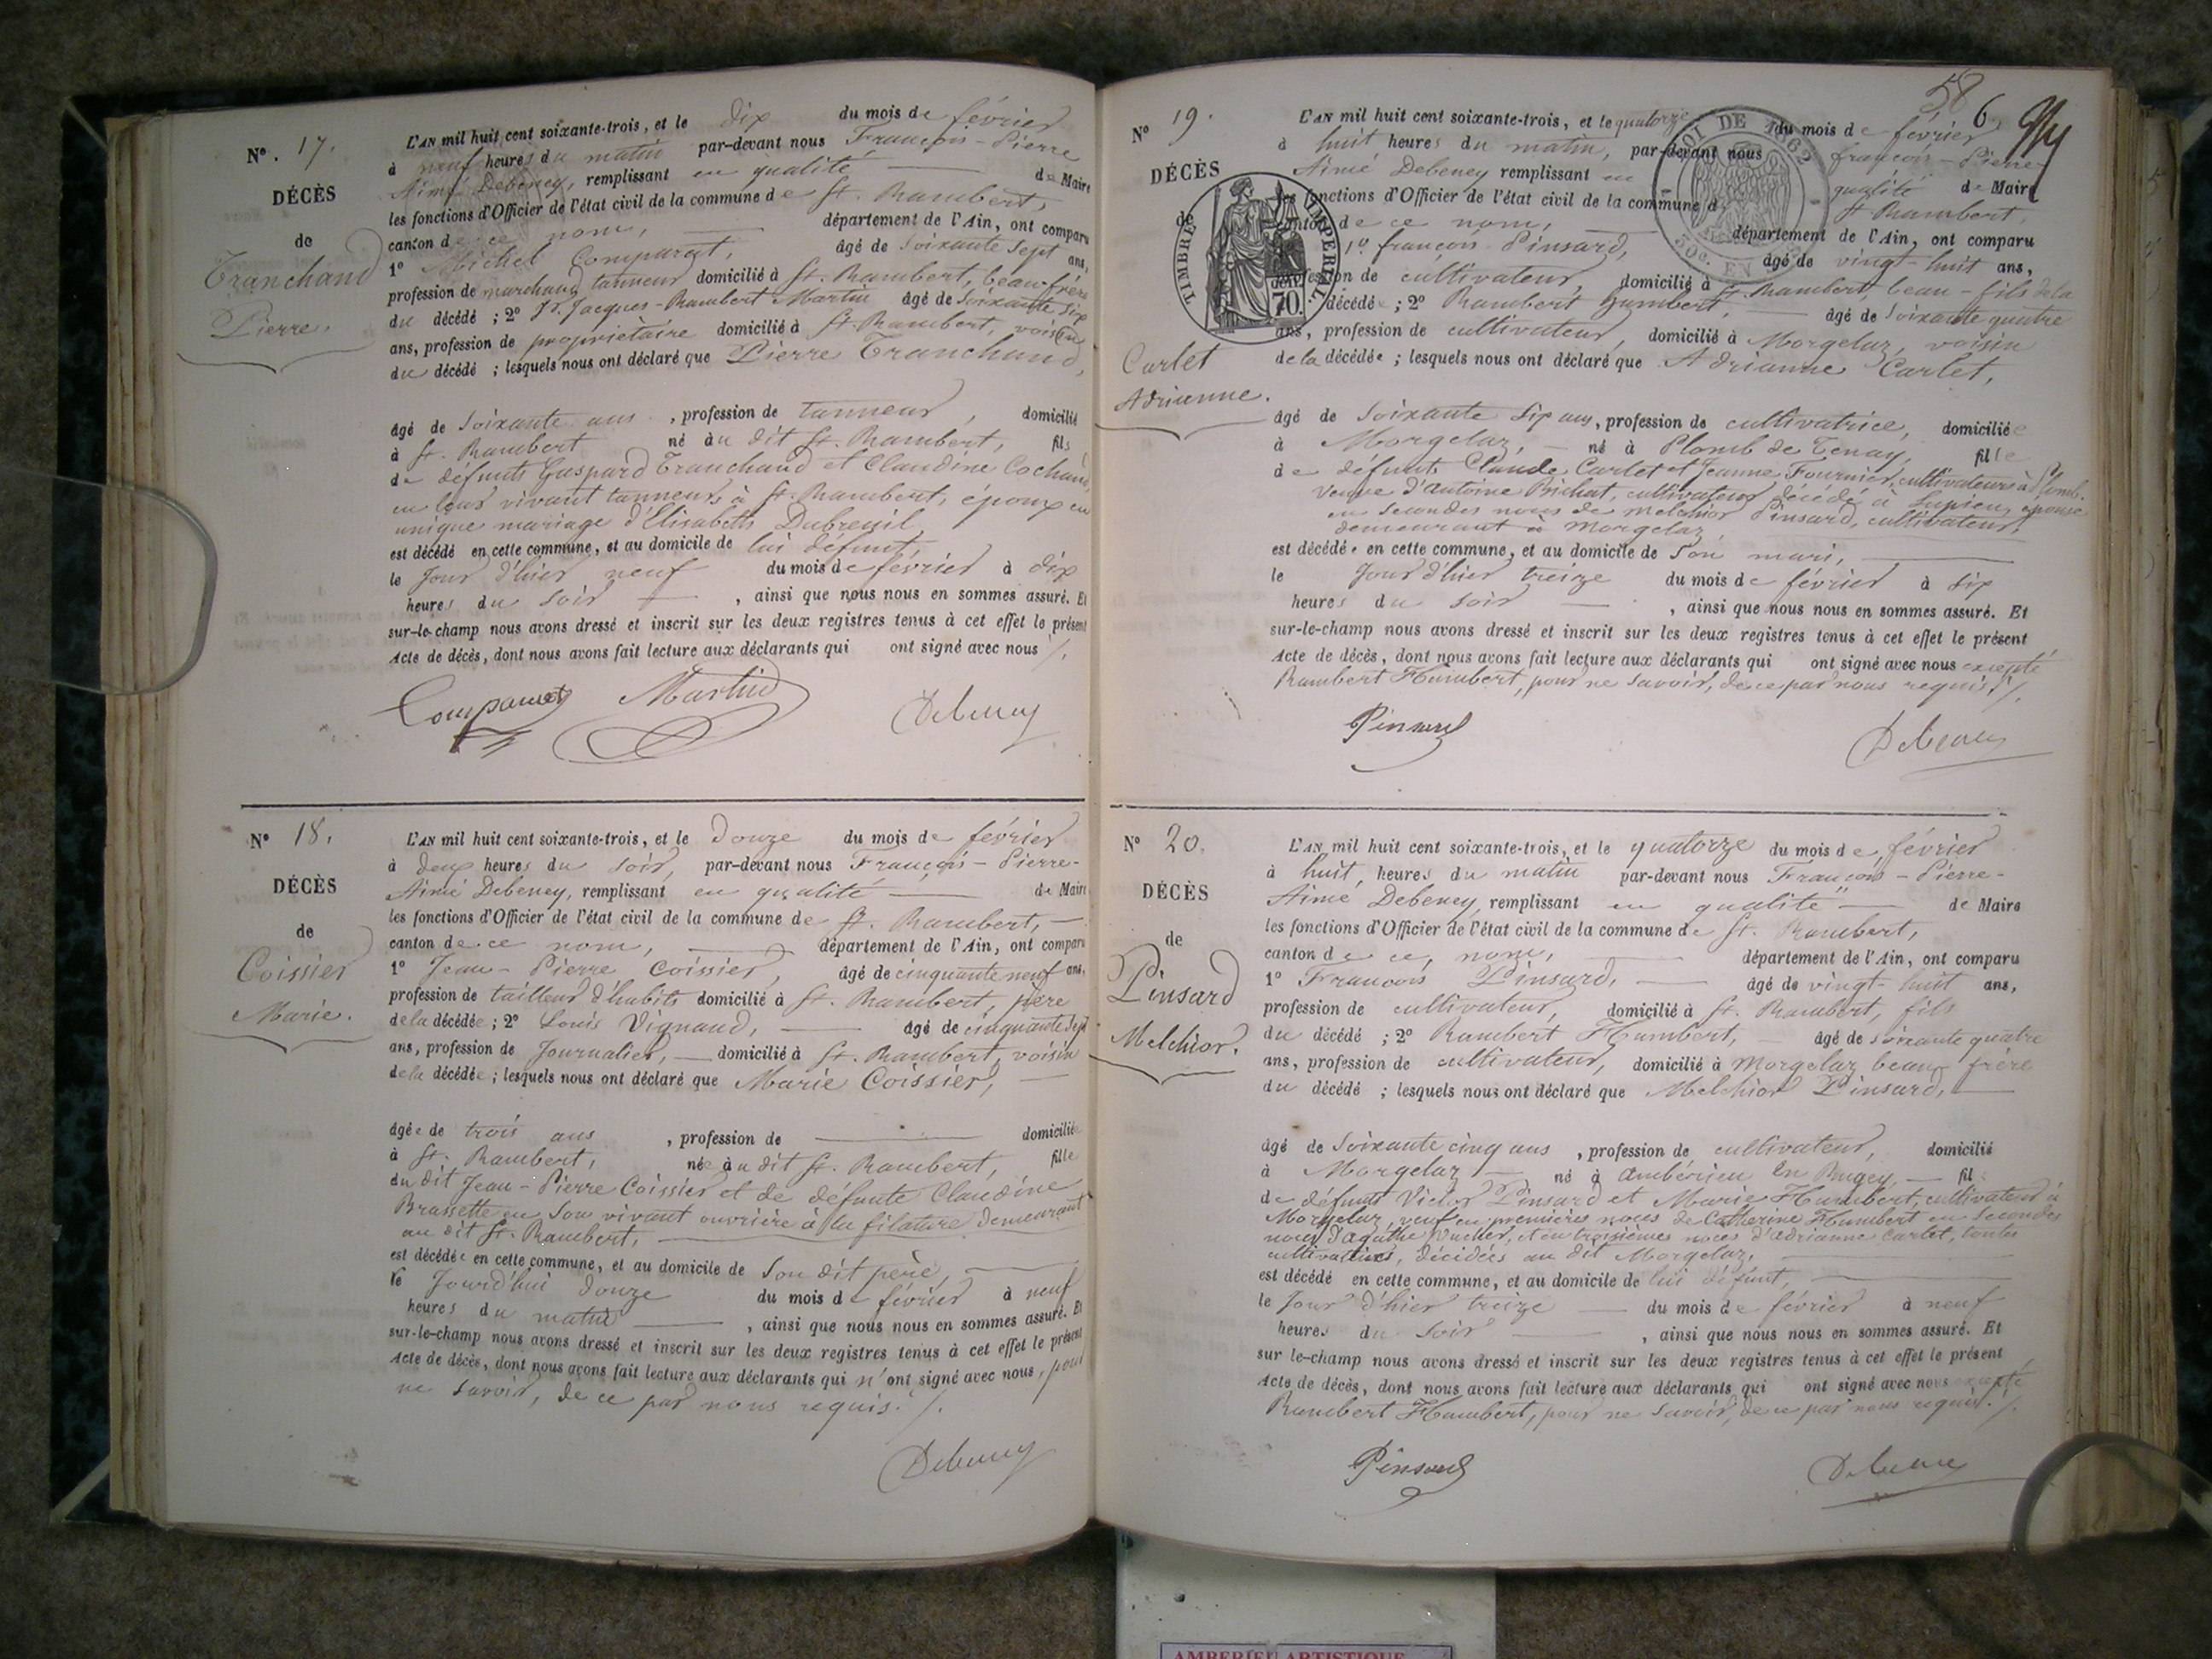 N° 17.
DÉCÈS
de
Tranchand
Pierre.
L'AN mil huit cent soixante-trois, et le dix du mois de février
à neuf heures du matin par-devant nous François-Pierre
Aimé Debeney, remplissant en qualité de Maire
les fonctions d'Officier de l'état civil de la commune de St. Rambert,
canton de ce nom, département de l'Ain, ont comparu
1° Michel Comparat, âgé de soixante sept ans,
profession de marchand tanneur domicilié à St. Rambert, beau-frère
du décédé ; 2° Jacques-Rambert Martin âgé de soixante six
ans, profession de propriétaire domicilié à St. Rambert, voisin
du décédé ; lesquels nous ont déclaré que Pierre Tranchand,
âgé de soixante ans, profession de tanneur, domicilié
à St. Rambert né au dit St. Rambert, fils
de défunts Gaspard Tranchand et Claudine Cochand,
en leur vivant tanneurs à St. Rambert, époux en
unique mariage d'Elisabeth Dubreuil
est décédé en cette commune, et au domicile de lui défunt,
le jour d'hier neuf du mois de février à dix
heures du soir, ainsi que nous nous en sommes assuré. Et
sur-le-champ nous avons dressé et inscrit sur les deux registres tenus à cet effet le présent
Acte de décès, dont nous avons fait lecture aux déclarants qui ont signé avec nous ./.
Martin Debeney
N° 18.
DÉCÈS
de
Coissier
Marie.
L'AN mil huit cent soixante-trois, et le douze du mois de février
à deux heures du soir, par-devant nous François-Pierre-
Aimé Debeney, remplissant en qualité de Maire
les fonctions d'Officier de l'état civil de la commune de St. Rambert,
canton de ce nom, département de l'Ain, ont comparu
1° Jean-Pierre Coissier, âgé de cinquante neuf ans,
profession de tailleur d'habits domicilié à St. Rambert, père
de la décédée ; 2° Louis Vignand, âgé de cinquante sept
ans, profession de journalier, domicilié à St. Rambert, voisin
de la décédée ; lesquels nous ont déclaré que Marie Coissier,
âgée de trois ans, profession de domiciliée
à St. Rambert, née au dit St. Rambert, fille
du dit Jean-Pierre Coissier et de défunte Claudine
Brassette en son vivant ouvrière à la filature demeurant
au dit St. Rambert,
est décédée en cette commune, et au domicile de son dit père,
le jourd'hui douze du mois de février à neuf
heures du matin, ainsi que nous nous en sommes assuré. Et
sur-le-champ nous avons dressé et inscrit sur les deux registres tenus à cet effet le présent
Acte de décès, dont nous avons fait lecture aux déclarants qui n'ont signé avec nous, pour
ne savoir, de ce par nous requis. ./.
Debeney
58
6
N° 19.
DÉCÈS
de
Carlet
Adrianne.
TIMBRE IMPERIAL
70.
LOI DE 1862
50c. EN
L'AN mil huit cent soixante-trois, et le quatorze du mois de février
à huit heures du matin, par-devant nous françois-Pierre-
Aimé Debeney remplissant en qualité de Maire
les fonctions d'Officier de l'état civil de la commune de St Rambert,
canton de ce nom, département de l'Ain, ont comparu
1° françois Pinsard, âgé de vingt-huit ans,
profession de cultivateur, domicilié à St. Rambert, beau-fils de la
décédée ; 2° Rambert Humbert, âgé de soixante quatre
ans, profession de cultivateur, domicilié à Morgelaz, voisin
de la décédée ; lesquels nous ont déclaré que Adrianne Carlet,
âgé de soixante six ans, profession de cultivatrice, domiciliée
à Morgelaz, né à Plomb de Tenay, fille
de défunts Claude Carlet et Jeanne Fournier, cultivateurs à Plomb.
Veuve d'Antoine Brichat, cultivateur décédé à Lupieu, épouse
en secondes noces de Melchior Pinsard, cultivateur,
demeurant à Morgelaz,
est décédée en cette commune, et au domicile de son mari,
le jour d'hier treize du mois de février à six
heures du soir, ainsi que nous nous en sommes assuré. Et
sur-le-champ nous avons dressé et inscrit sur les deux registres tenus à cet effet le présent
Acte de décès, dont nous avons fait lecture aux déclarants qui ont signé avec nous excepté
Rambert Humbert, pour ne savoir, de ce par nous requis. ./.
Pinsard Debeney
N° 20.
DÉCÈS
de
Pinsard
Melchior.
L'AN mil huit cent soixante-trois, et le quatorze du mois de février
à huit heures du matin par-devant nous François-Pierre-
Aimé Debeney, remplissant en qualité de Maire
les fonctions d'Officier de l'état civil de la commune de St. Rambert,
canton de ce nom, département de l'Ain, ont comparu
1° François Pinsard, âgé de vingt-huit ans,
profession de cultivateur, domicilié à St. Rambert, fils
du décédé ; 2° Rambert Humbert, âgé de soixante quatre
ans, profession de cultivateur, domicilié à Morgelaz beau frère
du décédé ; lesquels nous ont déclaré que Melchior Pinsard,
âgé de soixante cinq ans, profession de cultivateur, domicilié
à Morgelaz né à Ambérieu En Bugey, fils
de défunts Victor Pinsard et Marie Humbert, cultivateurs à
Morgelaz, veuf en premières noces de Catherine Humbert en secondes
noces d'Agathe, et en troisièmes noces d'adrianne Carlet, toutes
cultivatrices, décédées au dit Morgelaz.
est décédé en cette commune, et au domicile de lui défunt,
le jour d'hier treize du mois de février à neuf
heures du soir, ainsi que nous nous en sommes assuré. Et
sur le-champ nous avons dressé et inscrit sur les deux registres tenus à cet effet le présent
Acte de décès, dont nous avons fait lecture aux déclarants qui ont signé avec nous excepté
Rambert Humbert, pour ne savoir, de ce par nous requis. ./.
Pinsard Debeney
AMBERIEU ARTISTIQUE